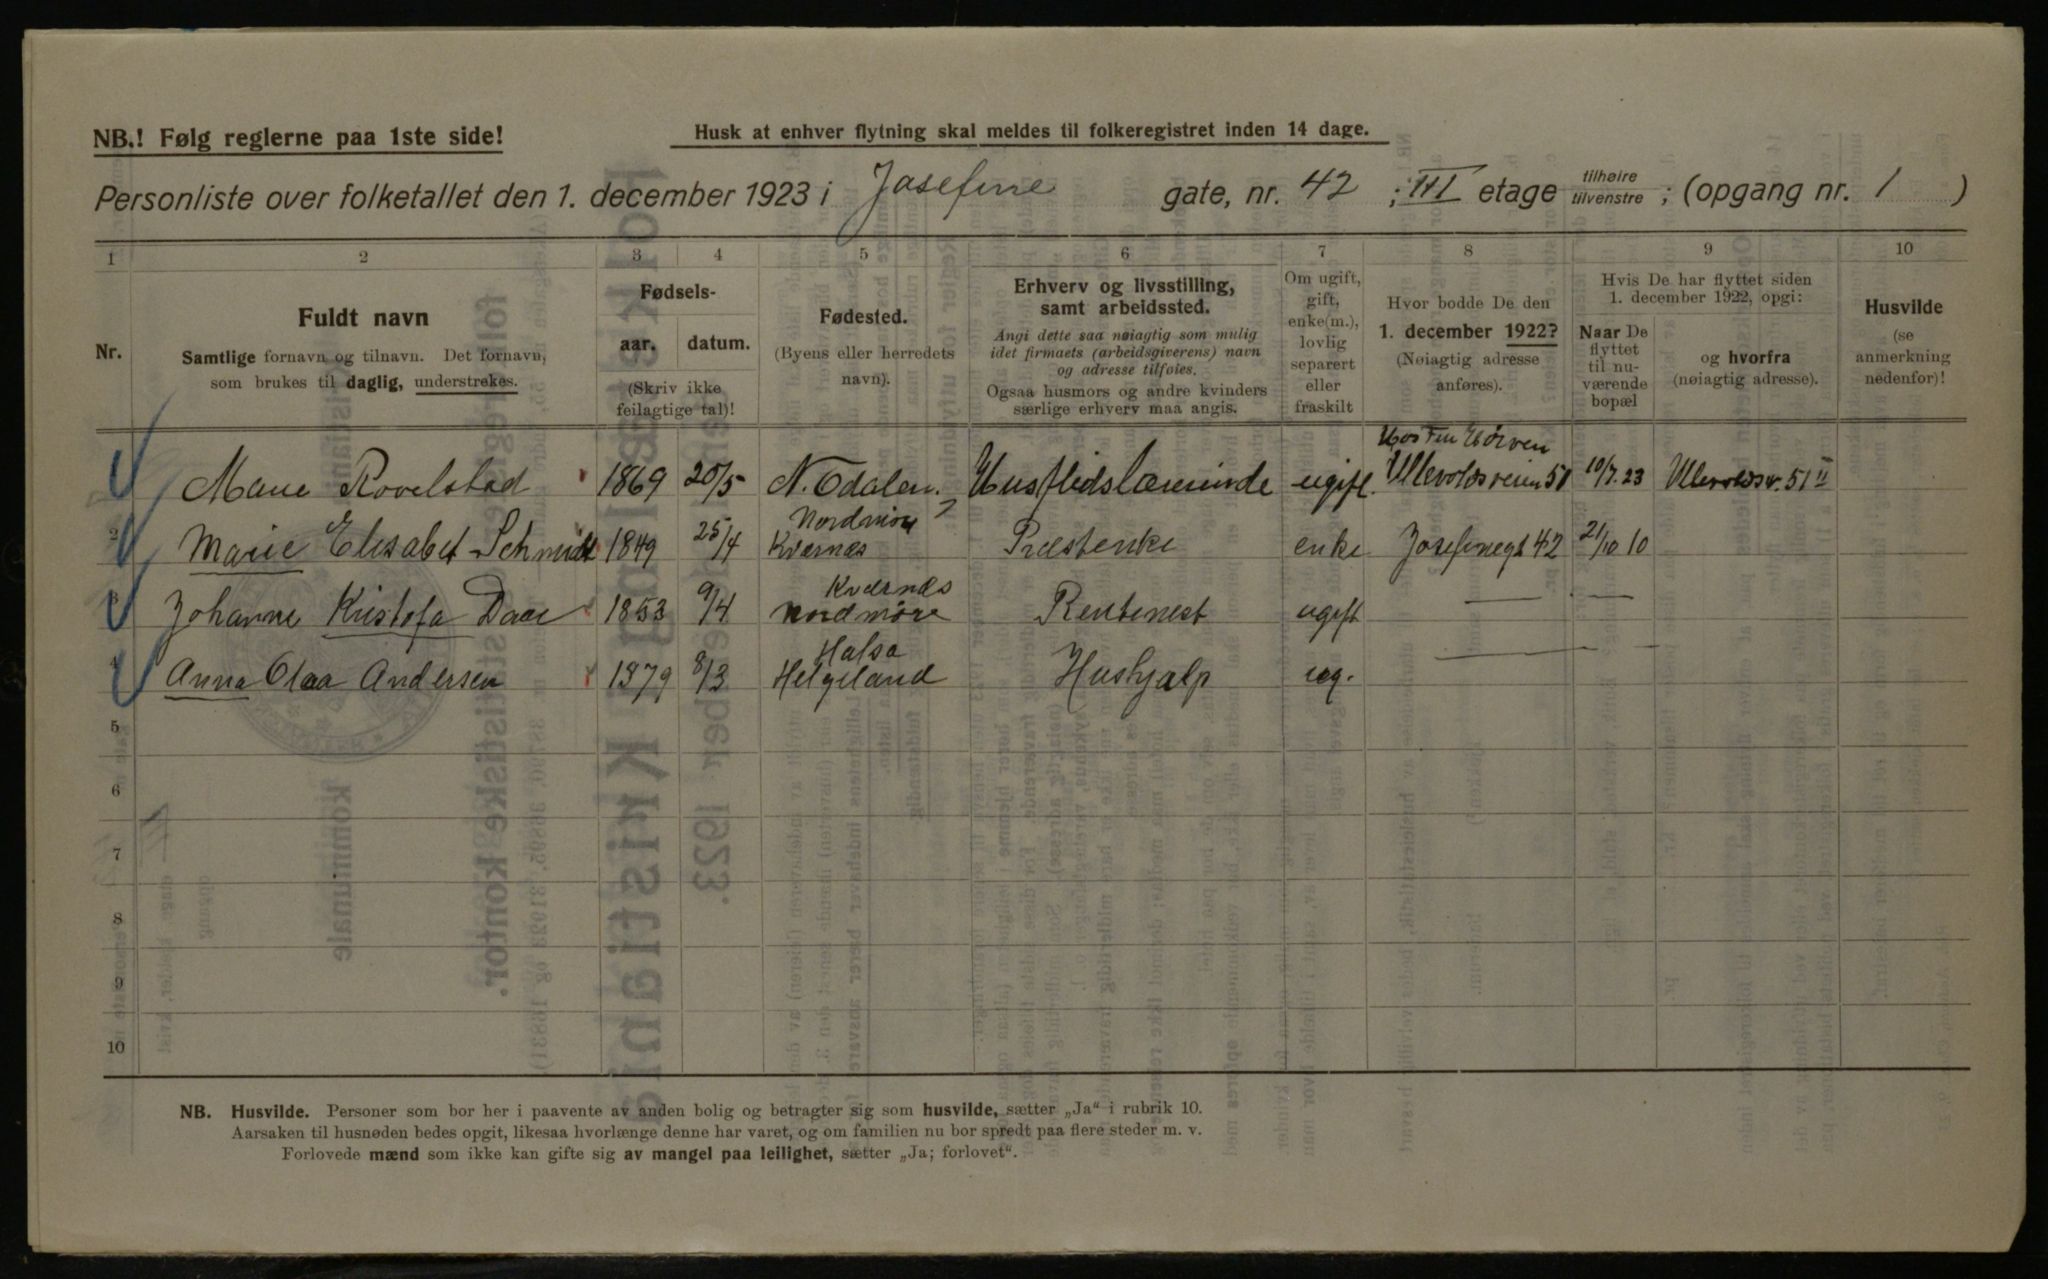 NB.! Følg reglerne paa 1ste side!
Husk at enhver flytning skal meldes til folkeregistret inden 14 dage.
Personliste over folketallet den 1. december 1923 i Josefine gate, nr. 42 ; III etage tilhøire tilvenstre ; (opgang nr. 1 )
1 2 3 4 5 6 7 8 9 10
Nr.
Fuldt navn
Samtlige fornavn og tilnavn. Det fornavn,
som brukes til daglig, understrekes.
Fødsels-
aar. datum.
(Skriv ikke
feilagtige tal)!
Fødested.
(Byens eller herredets
navn).
Erhverv og livsstilling,
samt arbeidssted.
Angi dette saa nøiagtig som mulig
idet firmaets (arbeidsgiverens) navn
og adresse tilføies.
Ogsaa husmors og andre kvinders
særlige erhverv maa angis.
Om ugift,
gift,
enke(m.),
lovlig
separert
eller
fraskilt
Hvor bodde De den
1. december 1922?
(Nøiagtig adresse
anføres).
Hvis De har flyttet siden
1. december 1922, opgi:
Naar De
flyttet
til nu-
værende
bopæl
og hvorfra
(nøiagtig adresse).
Husvilde
(se
anmerkning
nedenfor)!
Marie Rovelstad 1869 20/5 N. Odalen. Husflidslærerinde ugift. Ullevoldsveien 51 10/7.23 Ullevoldsv. 51 II
2 Marie Elisabet Schmidt 1849 25/4 Nordmøre Kværnæs Præstenke enke Josefinegt 42 21/10 10
3 Johanne Kristofa Daae 1853 9/4 Kværnæs Nordmøre Rentenest ugift — —
4 Anna Olaa Andersen 1879 8/3 Halsa Helgeland Hushjælp ug. — —
5
6
7
8
9
10
NB. Husvilde. Personer som bor her i paavente av anden bolig og betragter sig som husvilde, sætter „Ja“ i rubrik 10.
Aarsaken til husnøden bedes opgit, likesaa hvorlænge denne har varet, og om familien nu bor spredt paa flere steder m. v.
Forlovede mænd som ikke kan gifte sig av mangel paa leilighet, sætter „Ja; forlovet“.